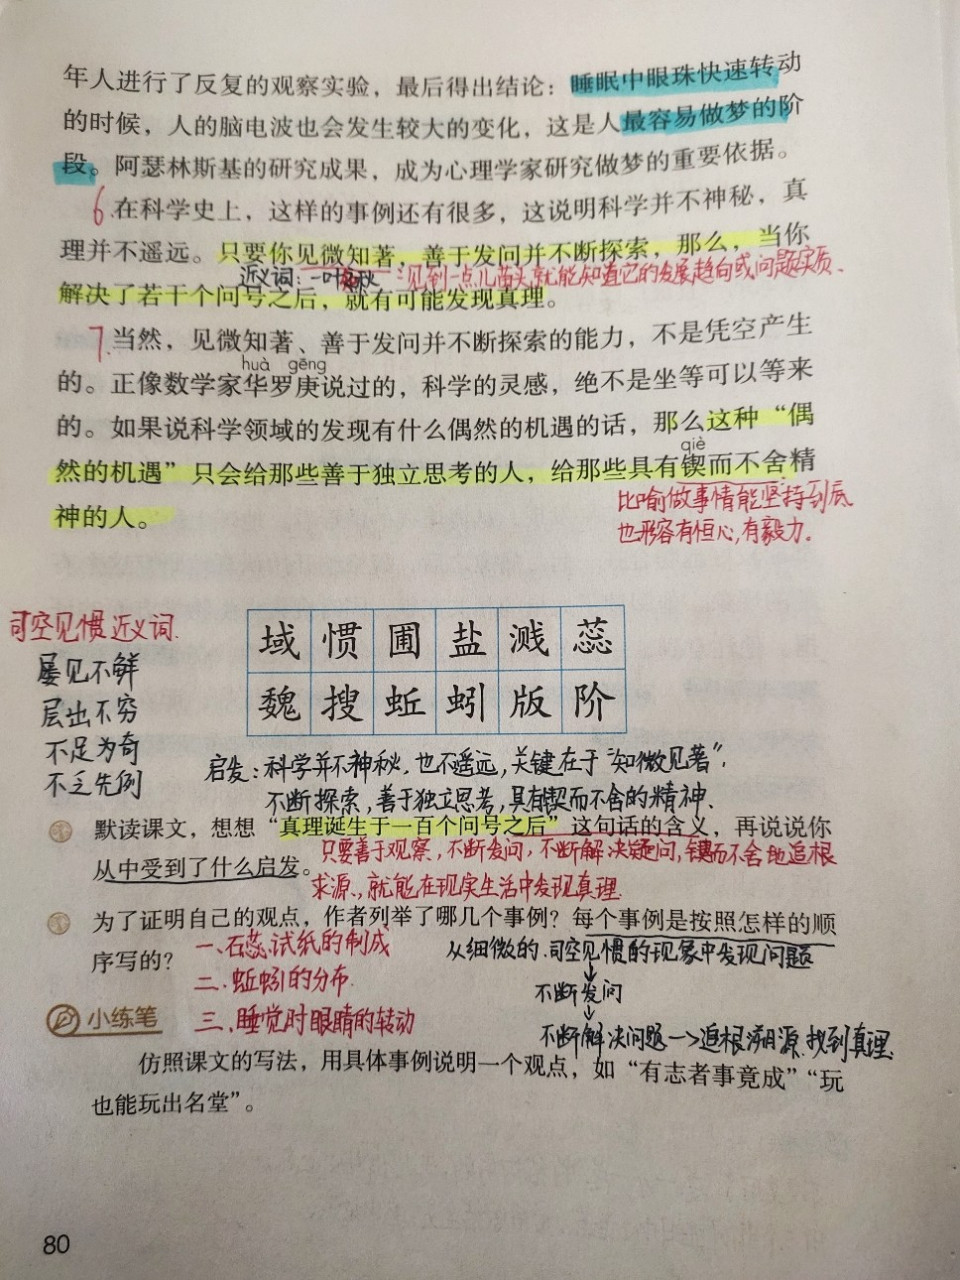 年人进行了反复的观察实验，最后得出结论：睡眠中眼珠快速转动
的时候，人的脑电波也会发生较大的变化，这是人最容易做梦的阶
段。阿瑟林斯基的研究成果，成为心理学家研究做梦的重要依据。
6.在科学史上，这样的事例还有很多，这说明科学并不神秘，真
理并不遥远。只要你见微知著，善于发问并不断探索，那么，当你
近义词：一叶知秋：见到一点儿苗头就能知道它的发展趋向或问题实质、
解决了若干个问号之后，就有可能发现真理。
7.当然，见微知著、善于发问并不断探索的能力，不是凭空产生
huà gēng
的。正像数学家华罗庚说过的，科学的灵感，绝不是坐等可以等来
的。如果说科学领域的发现有什么偶然的机遇的话，那么这种“偶
qiè
然的机遇”只会给那些善于独立思考的人，给那些具有锲而不舍精
神的人。
比喻做事情能坚持到底
也形容有恒心，有毅力。
司空见惯近义词.
屡见不鲜
层出不穷
不足为奇
不乏先例
域惯圃盐溅蕊
魏搜蚯蚓版阶
启发：科学并不神秘，也不遥远，关键在于“知微见著”，
不断探索，善于独立思考，具有锲而不舍的精神、
默读课文，想想“真理诞生于一百个问号之后”这句话的含义，再说说你
从中受到了什么启发。
只要善于观察，不断发问，不断解决疑问，锲而不舍地追根
求源、就能在现实生活中发现真理.
为了证明自己的观点，作者列举了哪几个事例？每个事例是按照怎样的顺
序写的？
一、石蕊试纸的制成
二、蚯蚓的分布.
三、睡觉时眼睛的转动
从细微的、司空见惯的现象中发现问题
↓
不断发问
↓
不断解决问题→追根溯源、找到真理.
小练笔
仿照课文的写法，用具体事例说明一个观点，如“有志者事竟成”“玩
也能玩出名堂”。
80